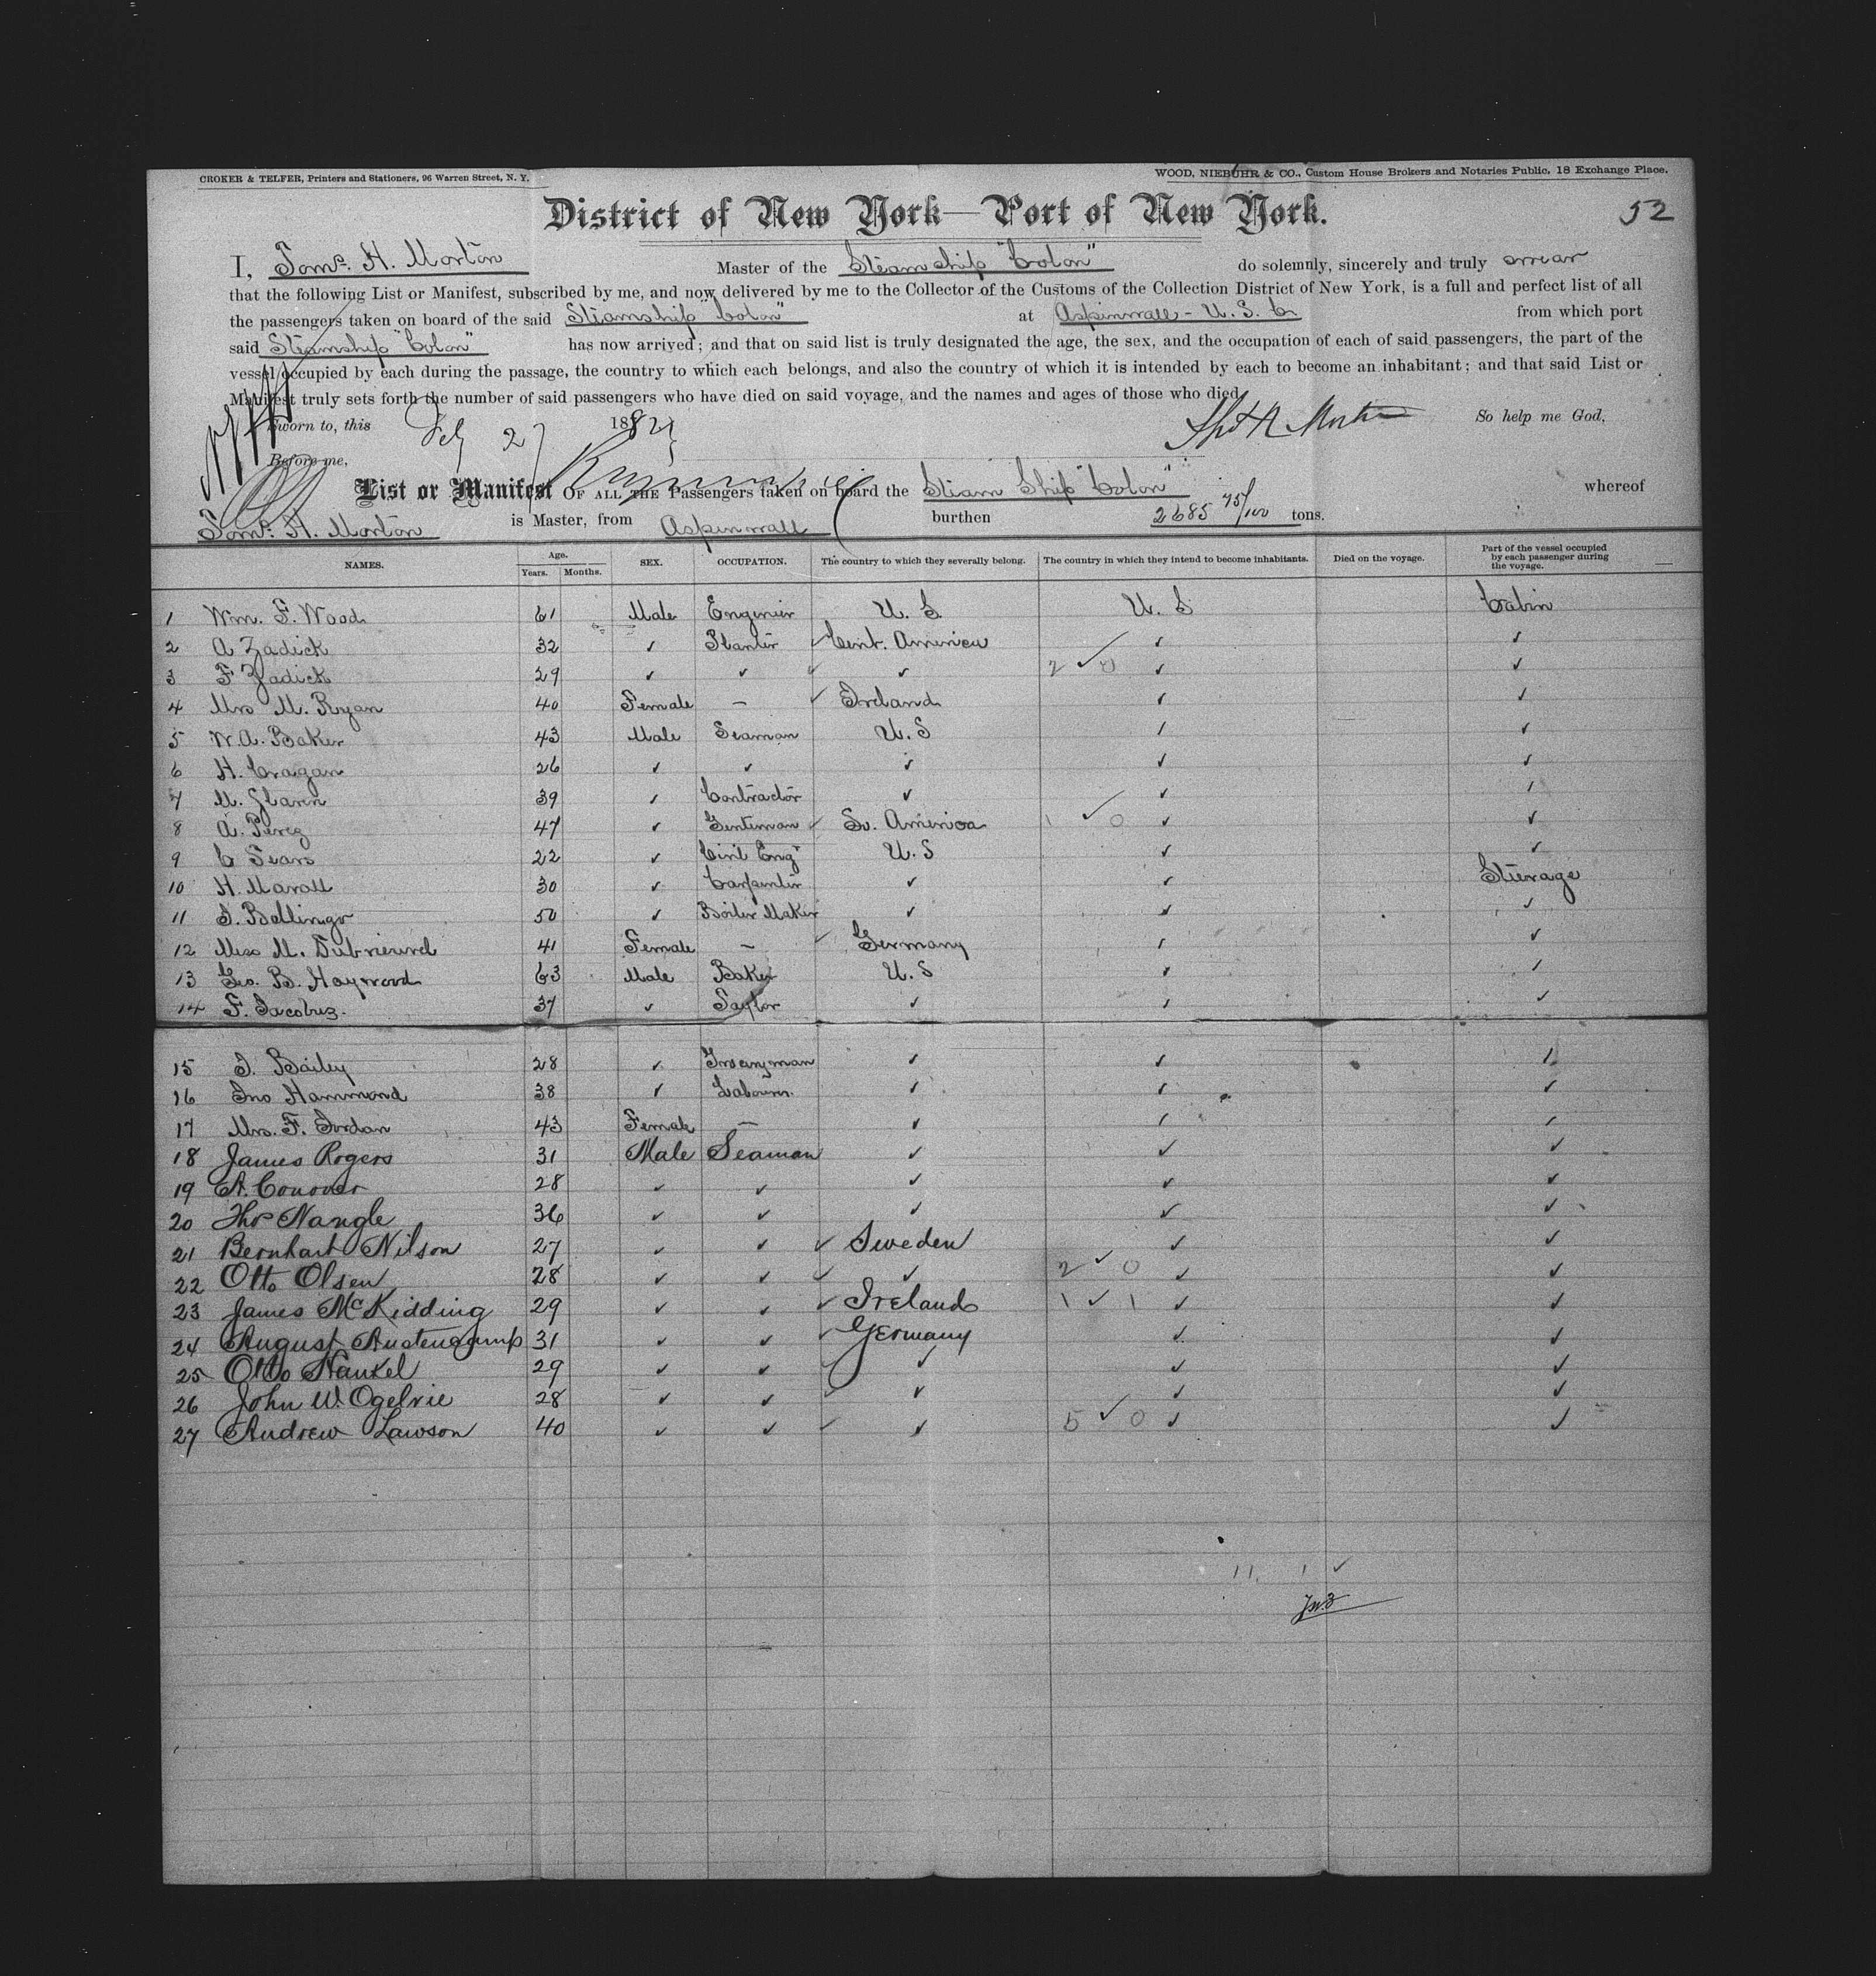 CROKER & TELFER, Printers and Stationers, 96 Warren Street, N. Y.
WOOD, NIEBUHR & CO., Custom House Brokers and Notaries Public, 18 Exchange Place.
District of New York—Port of New York.
52
I, Toms. H. Morton Master of the Steam ship "Colon" do solemnly, sincerely and truly swear
that the following List or Manifest, subscribed by me, and now delivered by me to the Collector of the Customs of the Collection District of New York, is a full and perfect list of all
the passengers taken on board of the said Steamship "Colon" at Aspinwall - U. S. C. from which port
said Steamship "Colon" has now arrived; and that on said list is truly designated the age, the sex, and the occupation of each of said passengers, the part of the
vessel occupied by each during the passage, the country to which each belongs, and also the country of which it is intended by each to become an inhabitant; and that said List or
Manifest truly sets forth the number of said passengers who have died on said voyage, and the names and ages of those who died.
Sworn to, this Feby 27 1882 So help me God,
Before me,
List or Manifest OF ALL THE Passengers taken on board the Steam Ship "Colon" whereof
Toms. H. Morton is Master, from Aspinwall burthen 2685 75/100 tons.
NAMES. Age. Years. Months. SEX. OCCUPATION. The country to which they severally belong. The country in which they intend to become inhabitants. Died on the voyage. Part of the vessel occupied by each passenger during the voyage.
1 Wm. F. Wood 61 Male Enginier U. S. U. S Cabin
2 A Zadick 32 ✓ Planter ✓ Cent. America ✓ ✓
3 F Zadick 29 ✓ ✓ ✓ ✓ 2 ✓ 0 ✓ ✓
4 Mrs M. Ryan 40 Female — ✓ Ireland ✓ ✓
5 W. A. Baker 43 Male Seaman U. S ✓ ✓
6 H. Cragan 26 ✓ ✓ ✓ ✓ ✓
7 M. 39 ✓ Contractor ✓ ✓ ✓
8 A. Perez 47 ✓ Gentleman ✓ So. America 1 ✓ 0 ✓ ✓
9 C Sears 22 ✓ Civil Engr U. S ✓ ✓
10 H. Marall 30 ✓ Carpenter ✓ ✓ Steerage
11 50 ✓ Boiler Maker ✓ ✓ ✓
12 Miss M. 41 Female — ✓ Germany ✓ ✓
13 Geo. B. Haywood 63 Male Baker U. S ✓ ✓
14 F. Jacobuz. 37 ✓ Taylor ✓ ✓ ✓
15 J. Bailey 28 ✓ ✓ ✓ ✓
16 Jno Hammond 38 ✓ Labourer. ✓ ✓ ✓
17 Mrs. F. Jordan 43 Female — ✓ ✓ ✓
18 James Rogers 31 Male Seaman ✓ ✓ ✓
19 A. Conover 28 ✓ ✓ ✓ ✓ ✓
20 Thos Nangle 36 ✓ ✓ ✓ ✓ ✓
21 Bernhart Nilson 27 ✓ ✓ ✓ Sweden ✓ ✓
22 Otto Olsen 28 ✓ ✓ ✓ ✓ 2 ✓ 0 ✓ ✓
23 James McKidding 29 ✓ ✓ ✓ Ireland 1 ✓ 1 ✓ ✓
24 August Austengamp 31 ✓ ✓ ✓ Germany ✓ ✓
25 Otto Hankel 29 ✓ ✓ ✓ ✓ ✓
26 John W. Ogelvie 28 ✓ ✓ ✓ ✓ ✓ ✓
27 Andrew Lawson 40 ✓ ✓ ✓ ✓ 5 ✓ 0 ✓ ✓
11. 1 ✓